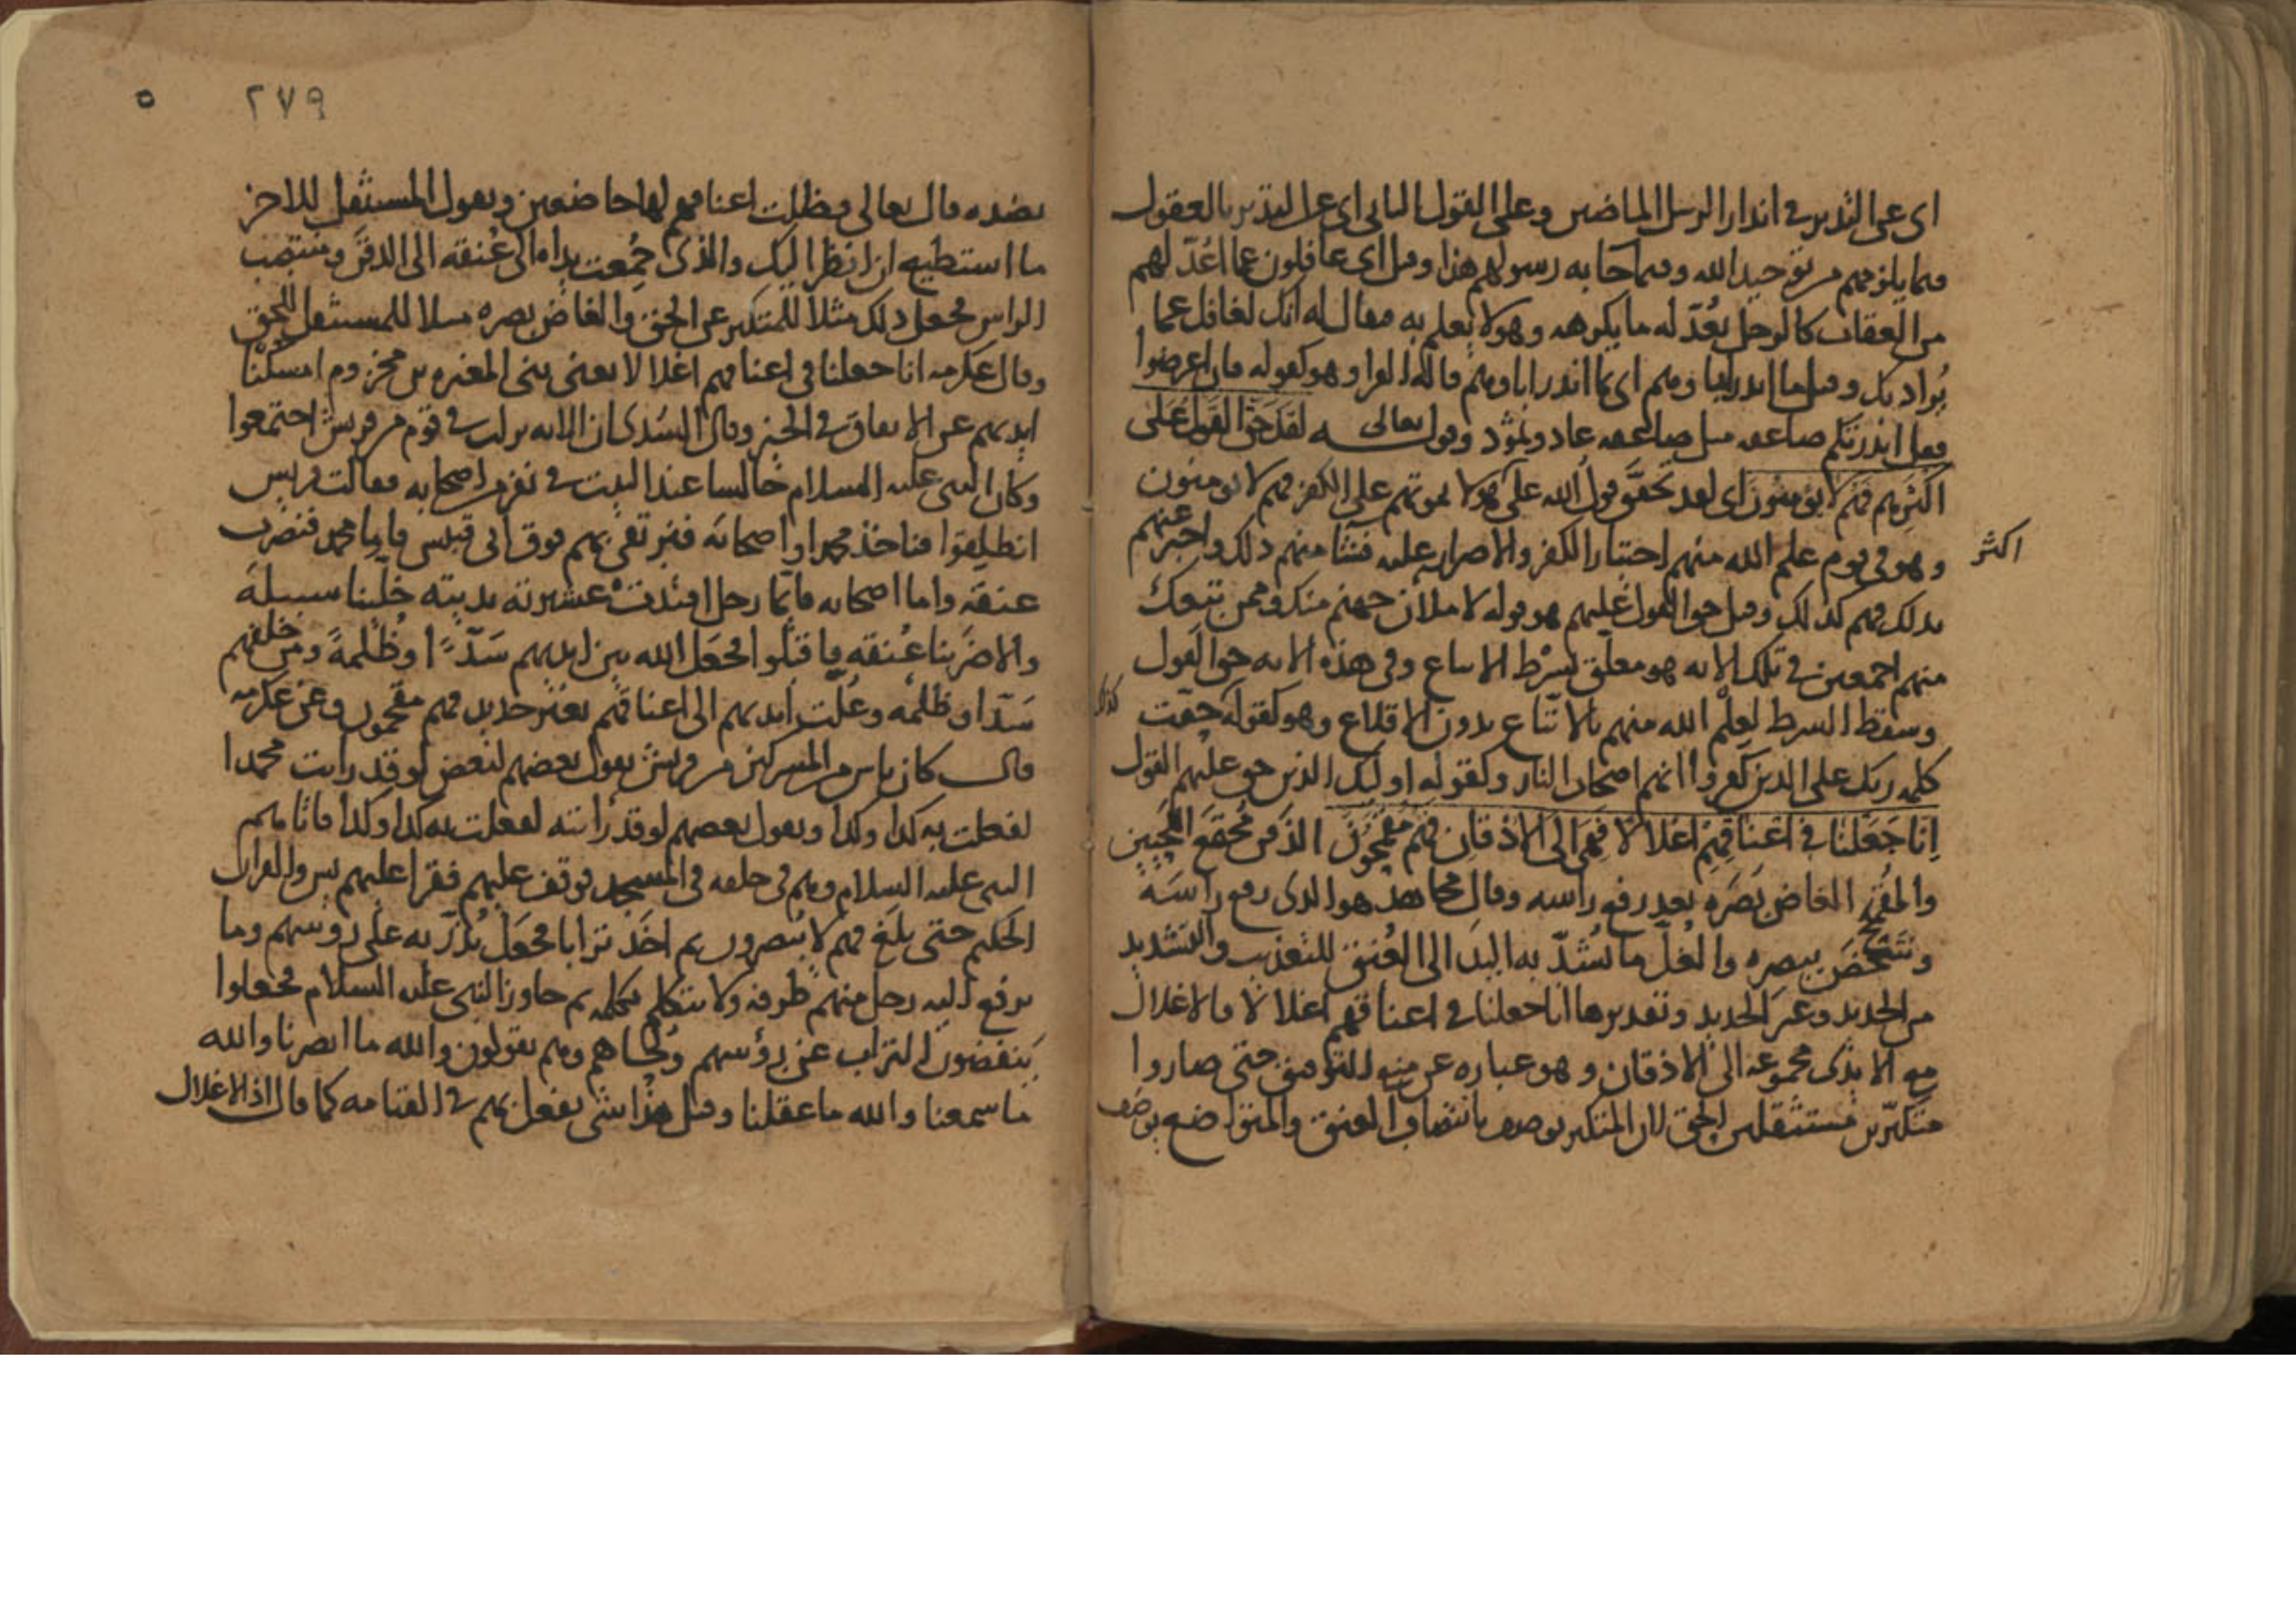 اى عن التدبر في انذار الرسل الماضين وعلى القول الثاني اى عن التدبر بالعقول
فيما يلزمهم من توحيد الله وفيما جاء به رسولهم هذا وقيل اى غافلون عما اعد لهم
من العقاب كالرجل يعد له ما يكرهه وهو لا يعلم به فيقال له انك لغافل عما
يراد بك وقيل ما انذر اباؤهم اى بما انذر اباؤهم قاله الفرا وهو كقوله فان اعرضوا
فقل انذرتكم صاعقه مثل صاعقه عاد وثمود وقوله تعالى لقد حق القول على
اكثرهم فهم لا يؤمنون اى لقد تحقق قول الله على هولا بموتهم على الكفر فهم لا يومنون
وهو في قوم علم الله منهم اختيار الكفر والاصرار عليه فشا منهم ذلك واخبر عنهم
اكثر
بذلك فهم كذلك وقيل حق القول عليهم هو قوله لاملان جهنم منك وممن تبعك
منهم اجمعين في تلك الايه هو معلق بشرط الاتباع وفي هذه الايه حق القول
وسقط الشرط لعلم الله منهم بالاتباع بدون الاقلاع وهو كقوله حقت
كذلك
كلمه ربك على الذين كفروا انهم اصحاب النار وكقوله اوليك الذين حق عليهم القول
انا جعلنا في اعناقهم اغلالا فهى الى الاذقان فهم مقمحون الذقن مجمع اللحيين
والمقمح الغاض بصره بعد رفع راسه وقال مجاهد هو الذى رفع راسه
وشخص ببصره والغل ما تشد به اليد الى العنق للتعذيب والتشديد
من الحديد وغير الحديد وتقديرها انا جعلنا في اعناقهم اغلالا فالاغلال
مع الايدى مجموعه الى الاذقان وهو عباره عن منع التوفيق حتى صاروا
متكبرين مستثقلين الحق لان المتكبر يوصف بانتصاب العنق والمتواضع يوصف
٢٧٩
٥
بضده قال تعالى فظلت اعناقهم لها خاضعين ويقول المستثقل للاخر
ما استطيع ان انظر اليك والذى جمعت يداه الى عنقه الى الذقن ومنتصب
الراس فجعل ذلك مثلا للمتكبر عن الحق والغاض بصره مثلا للمستثقل للحق
وقال عكرمه انا جعلنا في اعناقهم اغلالا يعنى بنى المغيره بن مخزوم امسكنا
ايديهم عن الانفاق في الخير وقال السدى ان الايه نزلت في قوم من قريش اجتمعوا
وكان النبى عليه السلام جالسا عند البيت في نفر من اصحابه فقالت قريش
انطلقوا فناخذ محمدا واصحابه فنرتقى بهم فوق ابى قبيس فاما محمد فنضرب
عنقه واما اصحابه فايما رجل افتدت عشيرته بديته خلينا سبيله
والا ضربنا عنقه فاقبلوا فجعل الله بين ايديهم سدا وظلمة ومن خلفهم
سدا وظلمه وغلت ايديهم الى اعناقهم بغير حديد فهم مقمحون وعن عكرمه
قال كان ناس من المشركين من قريش يقول بعضهم لبعض لو قد رايت محمدا
لفعلت به كذا وكذا ويقول بعضهم لو قد رايته لفعلت به كذا وكذا فاتاهم
النبى عليه السلام وهم في حلقه في المسجد فوقف عليهم فقرا عليهم يس والقران
الحكيم حتى بلغ فهم لا يبصرون ثم اخذ ترابا فجعل يذر به على روسهم وما
يرفع اليه رجل منهم طرفه ولا يتكلم بكلمه ثم جاوز النبى عليه السلام فجعلوا
ينفضون التراب عن رؤسهم ولحاهم وهم يقولون والله ما ابصرنا والله
ما سمعنا والله ما عقلنا وقيل هذا شى يفعل بهم في القيامه كما قال اذ الاغلال